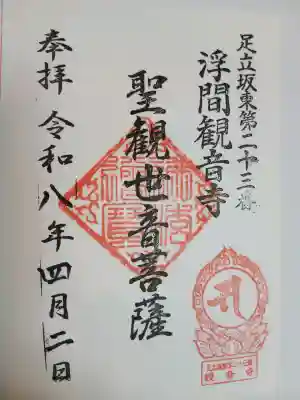 足立坂東第二十三番
浮間観音寺
聖觀世音菩薩
奉拝 令和八年四月二日